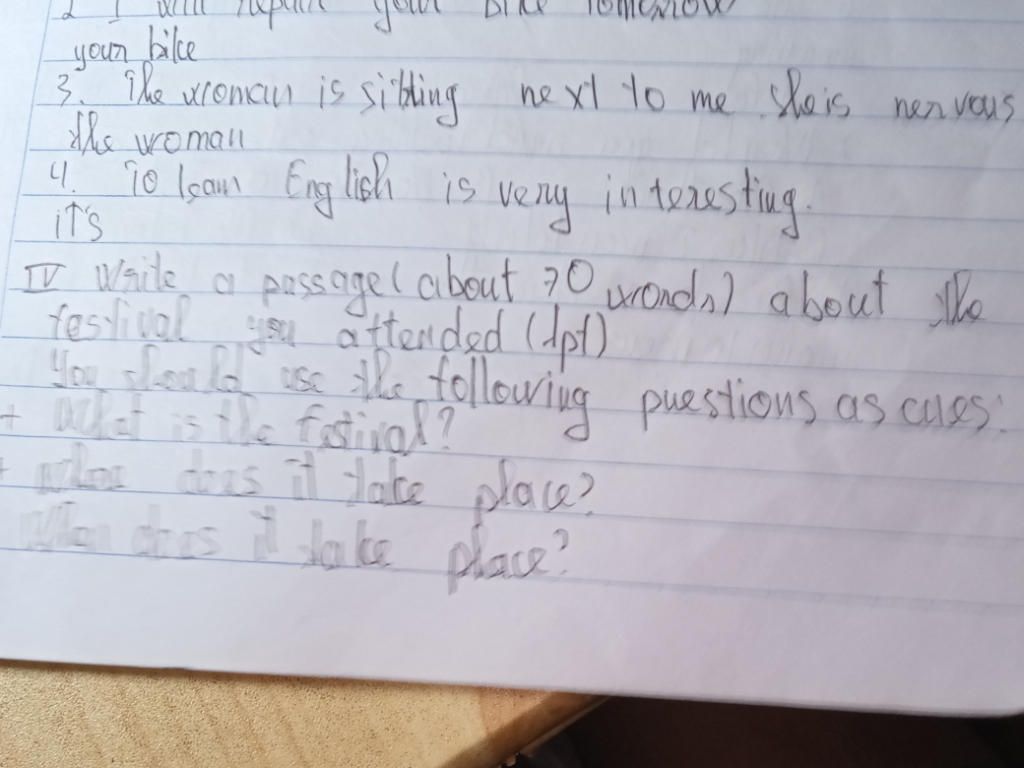 2 I will repair your bike tomorrow
your bike
3. The woman is sitting next to me. She is nervous
the woman
4. To learn English is very interesting.
it's
IV Write a passage (about 70 words) about the
festival you attended (1pt)
You should use the following questions as cues:
+ What is the festival?
+ Where does it take place?
When does it take place?